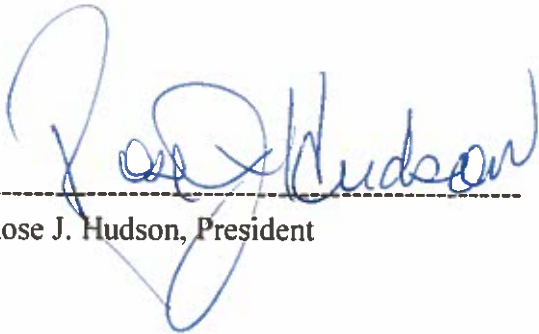 Rose J Hudson
ose J. Hudson, President